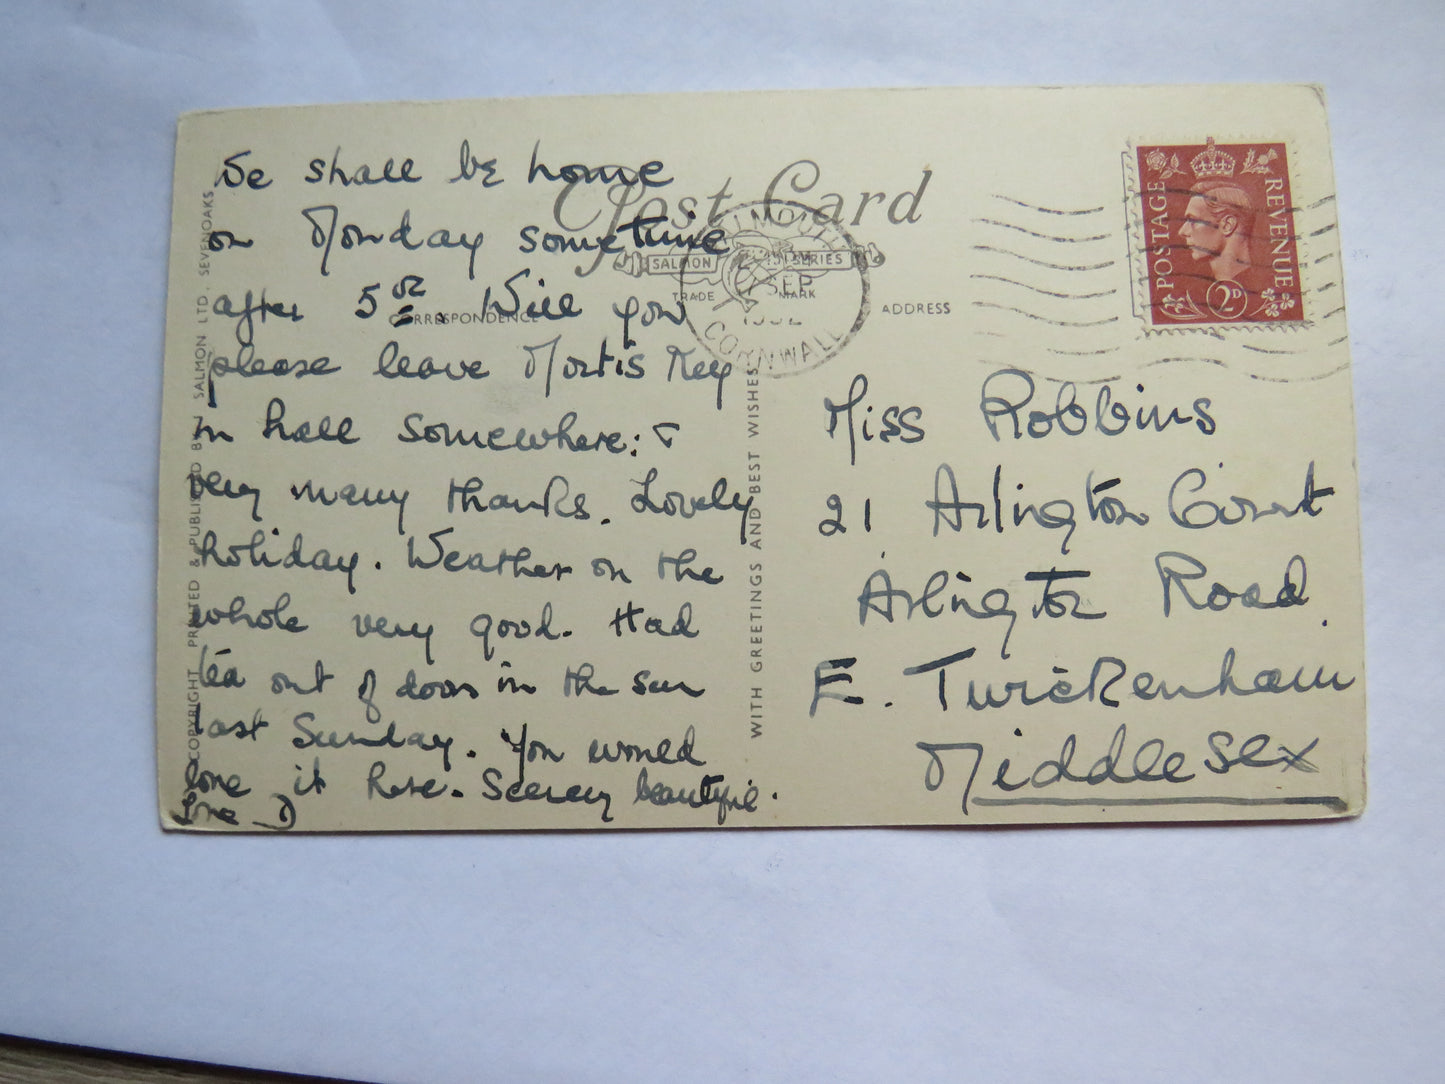 We shall be home
on Monday sometime
after 5 oz. Will you
please leave Mortis Key
in hall somewhere: &
very many thanks. Lovely
holiday. Weather on the
whole very good. Had
tea out of doors in the sun
last Sunday. You would
love it here. Scenery beautiful.
Love D
Post Card
SALMON SERIES
TRADE MARK
CORRESPONDENCE
ADDRESS
SEP
CORNWALL
POSTAGE REVENUE
2D
Miss Robbins
21 Arlington Court
Arlington Road.
E. Twickenham
Middlesex
COPYRIGHT PRINTED & PUBLISHED BY J SALMON LTD, SEVENOAKS
WITH GREETINGS AND BEST WISHES